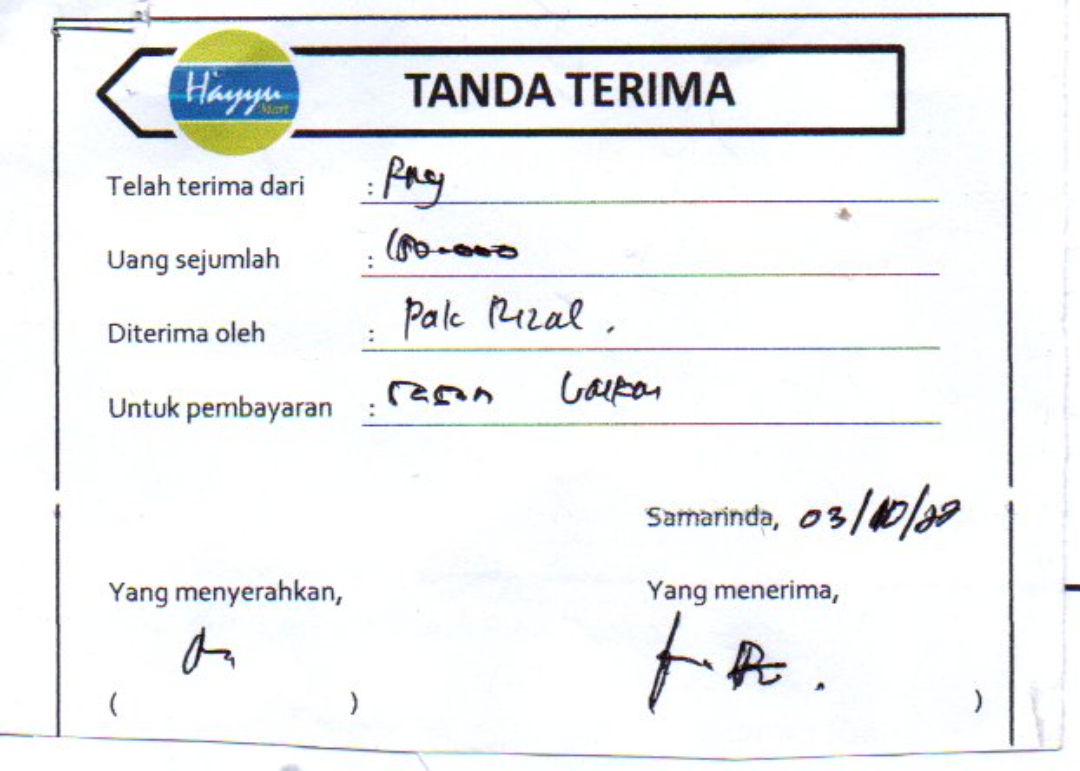 Hayyu
Mart
TANDA TERIMA
Telah terima dari :
Uang sejumlah : 150.000
Diterima oleh : Pak Rizal.
Untuk pembayaran :
Samarinda, 03/10/22
Yang menyerahkan,
Yang menerima,
( )
( )